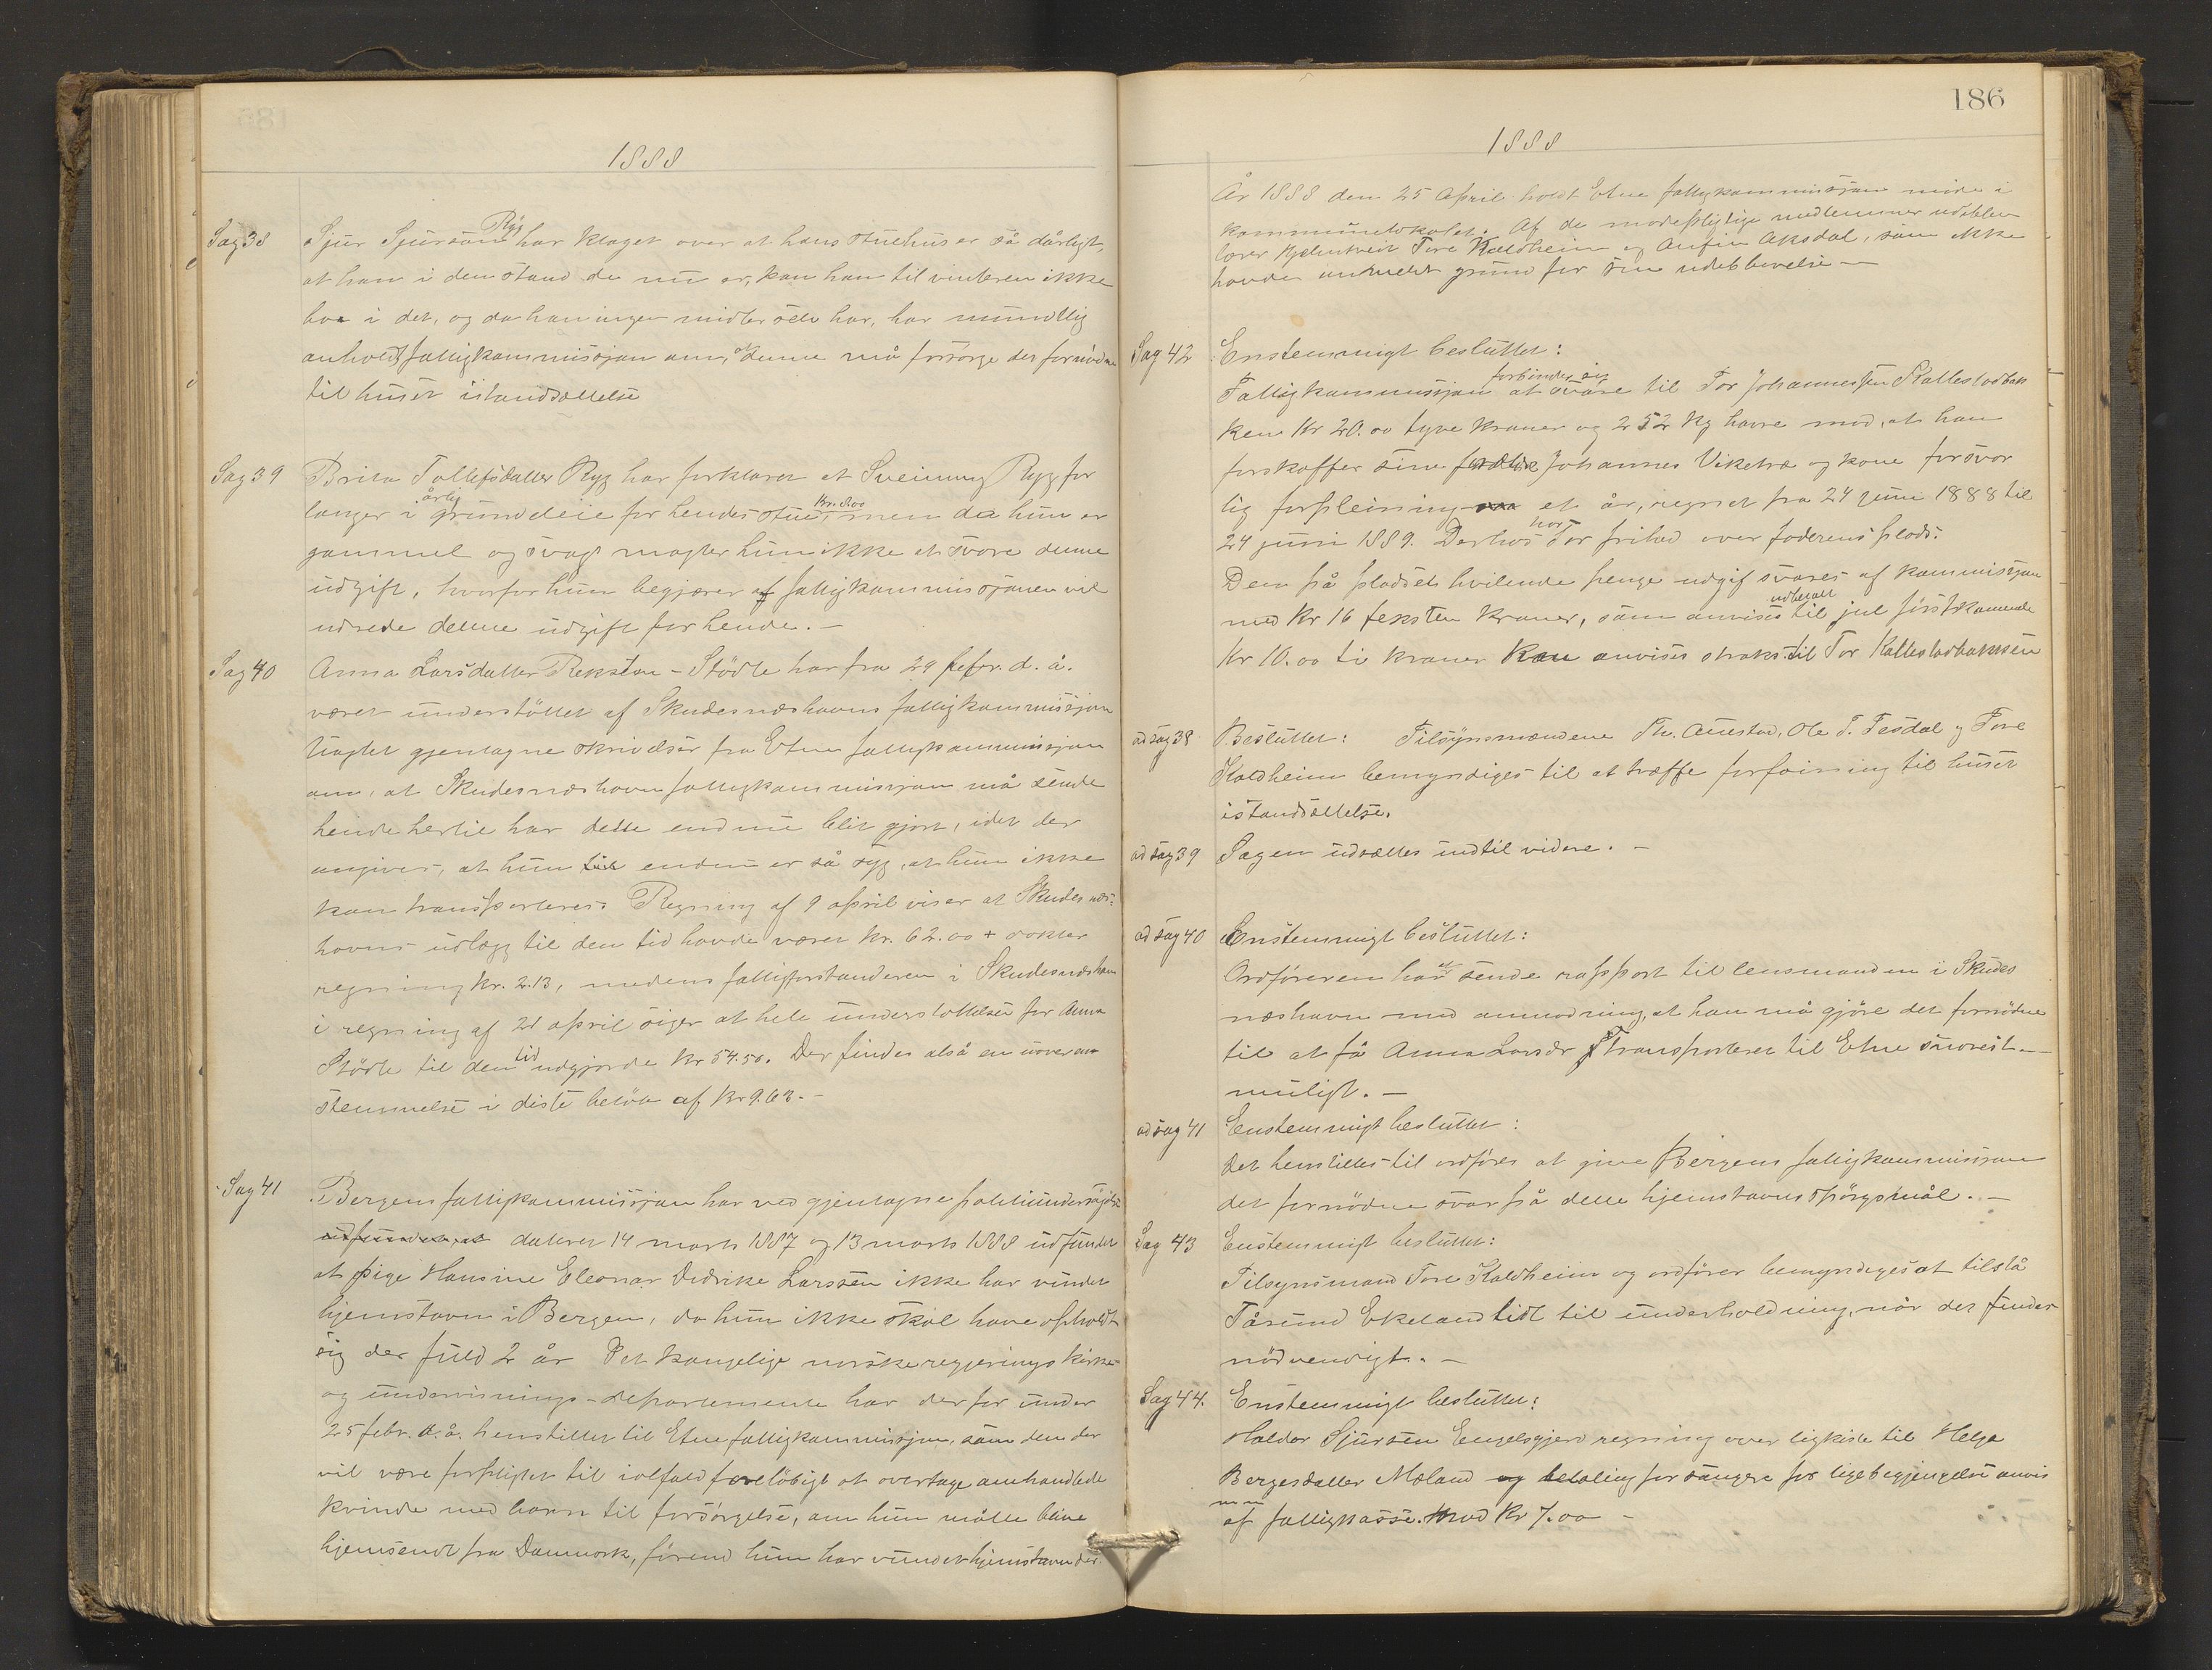 1888
Sag 38 Sjur Sjursøn Ryg har klaget over at hans stuehus er så dårligt,
at han i den stand de nu er, kan han til vinteren ikke
bo i det, og da han ingen midler selv har, har mundtlig
anholdt fattigkommissjon om, at denne må forsørge det fornødne
til huset istandsættelse
Sag 39 Brita Tollefsdatter Ryg har forklaret at Sveinung Ryg for
langer i årlig grundleie for hendes stue, Kr. 8.00 men da hun er
gammel og svag magter hun ikke at svare denne
udgift, hvorfor hun begjærer af fattigkommissjonen vil
udrede denne udgift for hende. —
Sag 40 Anna Larsdatter Reksten - Stödle har fra 29 febr. d. å.
været understöttet af Skudesnæshavns fattigkommissjon
Uagtet gjentagne skrivelser fra Etne fattigkommissjon
om, at Skudesnæshavn fattigkommissjon må sende
hende hertil har dette endnu blit gjort, idet der
angives, at hun til endnu er så syg, at hun ikke
kan transporteres. Regning af 9 april viser at Skudesnæs-
havns udlegg til den tid havde været kr. 62.00 + dokter
regning kr. 2.13, medens fattigforstanderen i Skudesnæshavn
i regning af 21 april siger at hele understöttelsen for Anna
Stödle til den tid udgjorde kr 54.50. Der findes altså en uoverens
stemmelse i diste belöb af kr 9.63. —
Sag 41 Bergens fattigkommissjon har ved gjentagne politiundersögelse
udfundet, at dateret 14 marts 1887 og 13 marts 1888 udfundet
at pige Hansine Eleonar Didrike Larssen ikke har vundet
hjemstavn i Bergen, da hun ikke skal have opholdt
sig der fuld 2 år Det kongelige norske regjerings kirke-
og undervisnings-departemente har derfor under
25 febr. d. å. henstillet til Etne fattigkommissjon, som den der
vil være forpligtet til ialfald foreløbigt at overtage omhandlede
kvinde med barn til forsörgelse, om hun måtte blive
hjemsendt fra Danmark, förend hun har vundet hjemstavn der.
186
1888
År 1888 den 25 April holdt Etne fattigkommissjon möde i
kommunelokalet. Af de mødepligtige medlemmer udeblev
lærer Tore Kaldheim og Anfin Aksdal, som ikke
havde anmeldt grund for sine udeblivelse —
Sag 42 Enstemmigt besluttet:
Fattigkommissjon forbinder sig at svare til Tor Johannessen Kalleslodbak
ken Kr 20.00 tyve kroner og 252 kg havre mod, at han
forskaffer sine forældre Johannes Viketræ og kone forsvar
lig forpleining et år, regnet fra 24 juni 1888 til
24 juni 1889. Derhos har Tor frihed over faderens plads.
Den på pladsen hvilende penge udgif svares af kommissjon
med kr 16 seksten kroner, som anvises udbetalt til jul førstkommende
Kr 10.00 ti kroner kan anvises straks til Tor Kalleslodbakken
ad sag 38 Besluttet: Tilsynsmændene Th. Austad, Ole T. Tesdal og Tore
Kaldheim bemyndiges til at træffe forføining til huset
istandsættelse.
ad sag 39 Sagen udsættes indtil videre. —
ad sag 40 Enstemmigt besluttet:
Ordföreren har at sende rapport til lensmanden i Skudes
næshavn med anmodning, at han må gjöre det fornödne
til at få Anna Larsdr transporteret til Etne snarest
muligt. —
ad sag 41 Enstemmigt besluttet:
Det henstilles til ordförer at give Bergens fattigkommissjon
det fornödne svar på dette hjemstavns spörgsmål. —
Sag 43 Enstemmigt besluttet:
Tilsynsmand Tore Kaldheim og ordförer bemyndiges at tilstå
Tåsund Ekeland lidt til underholdning, når det findes
nödvendigt. —
Sag 44. Enstemmigt besluttet:
Haldor Sjursen Engelsgjerd regning over ligkiste til Helga
Bergesdatter Mæland og betaling for sangere for ligbegjengelse anvis
af fattigkasse. med Kr 7.00 —